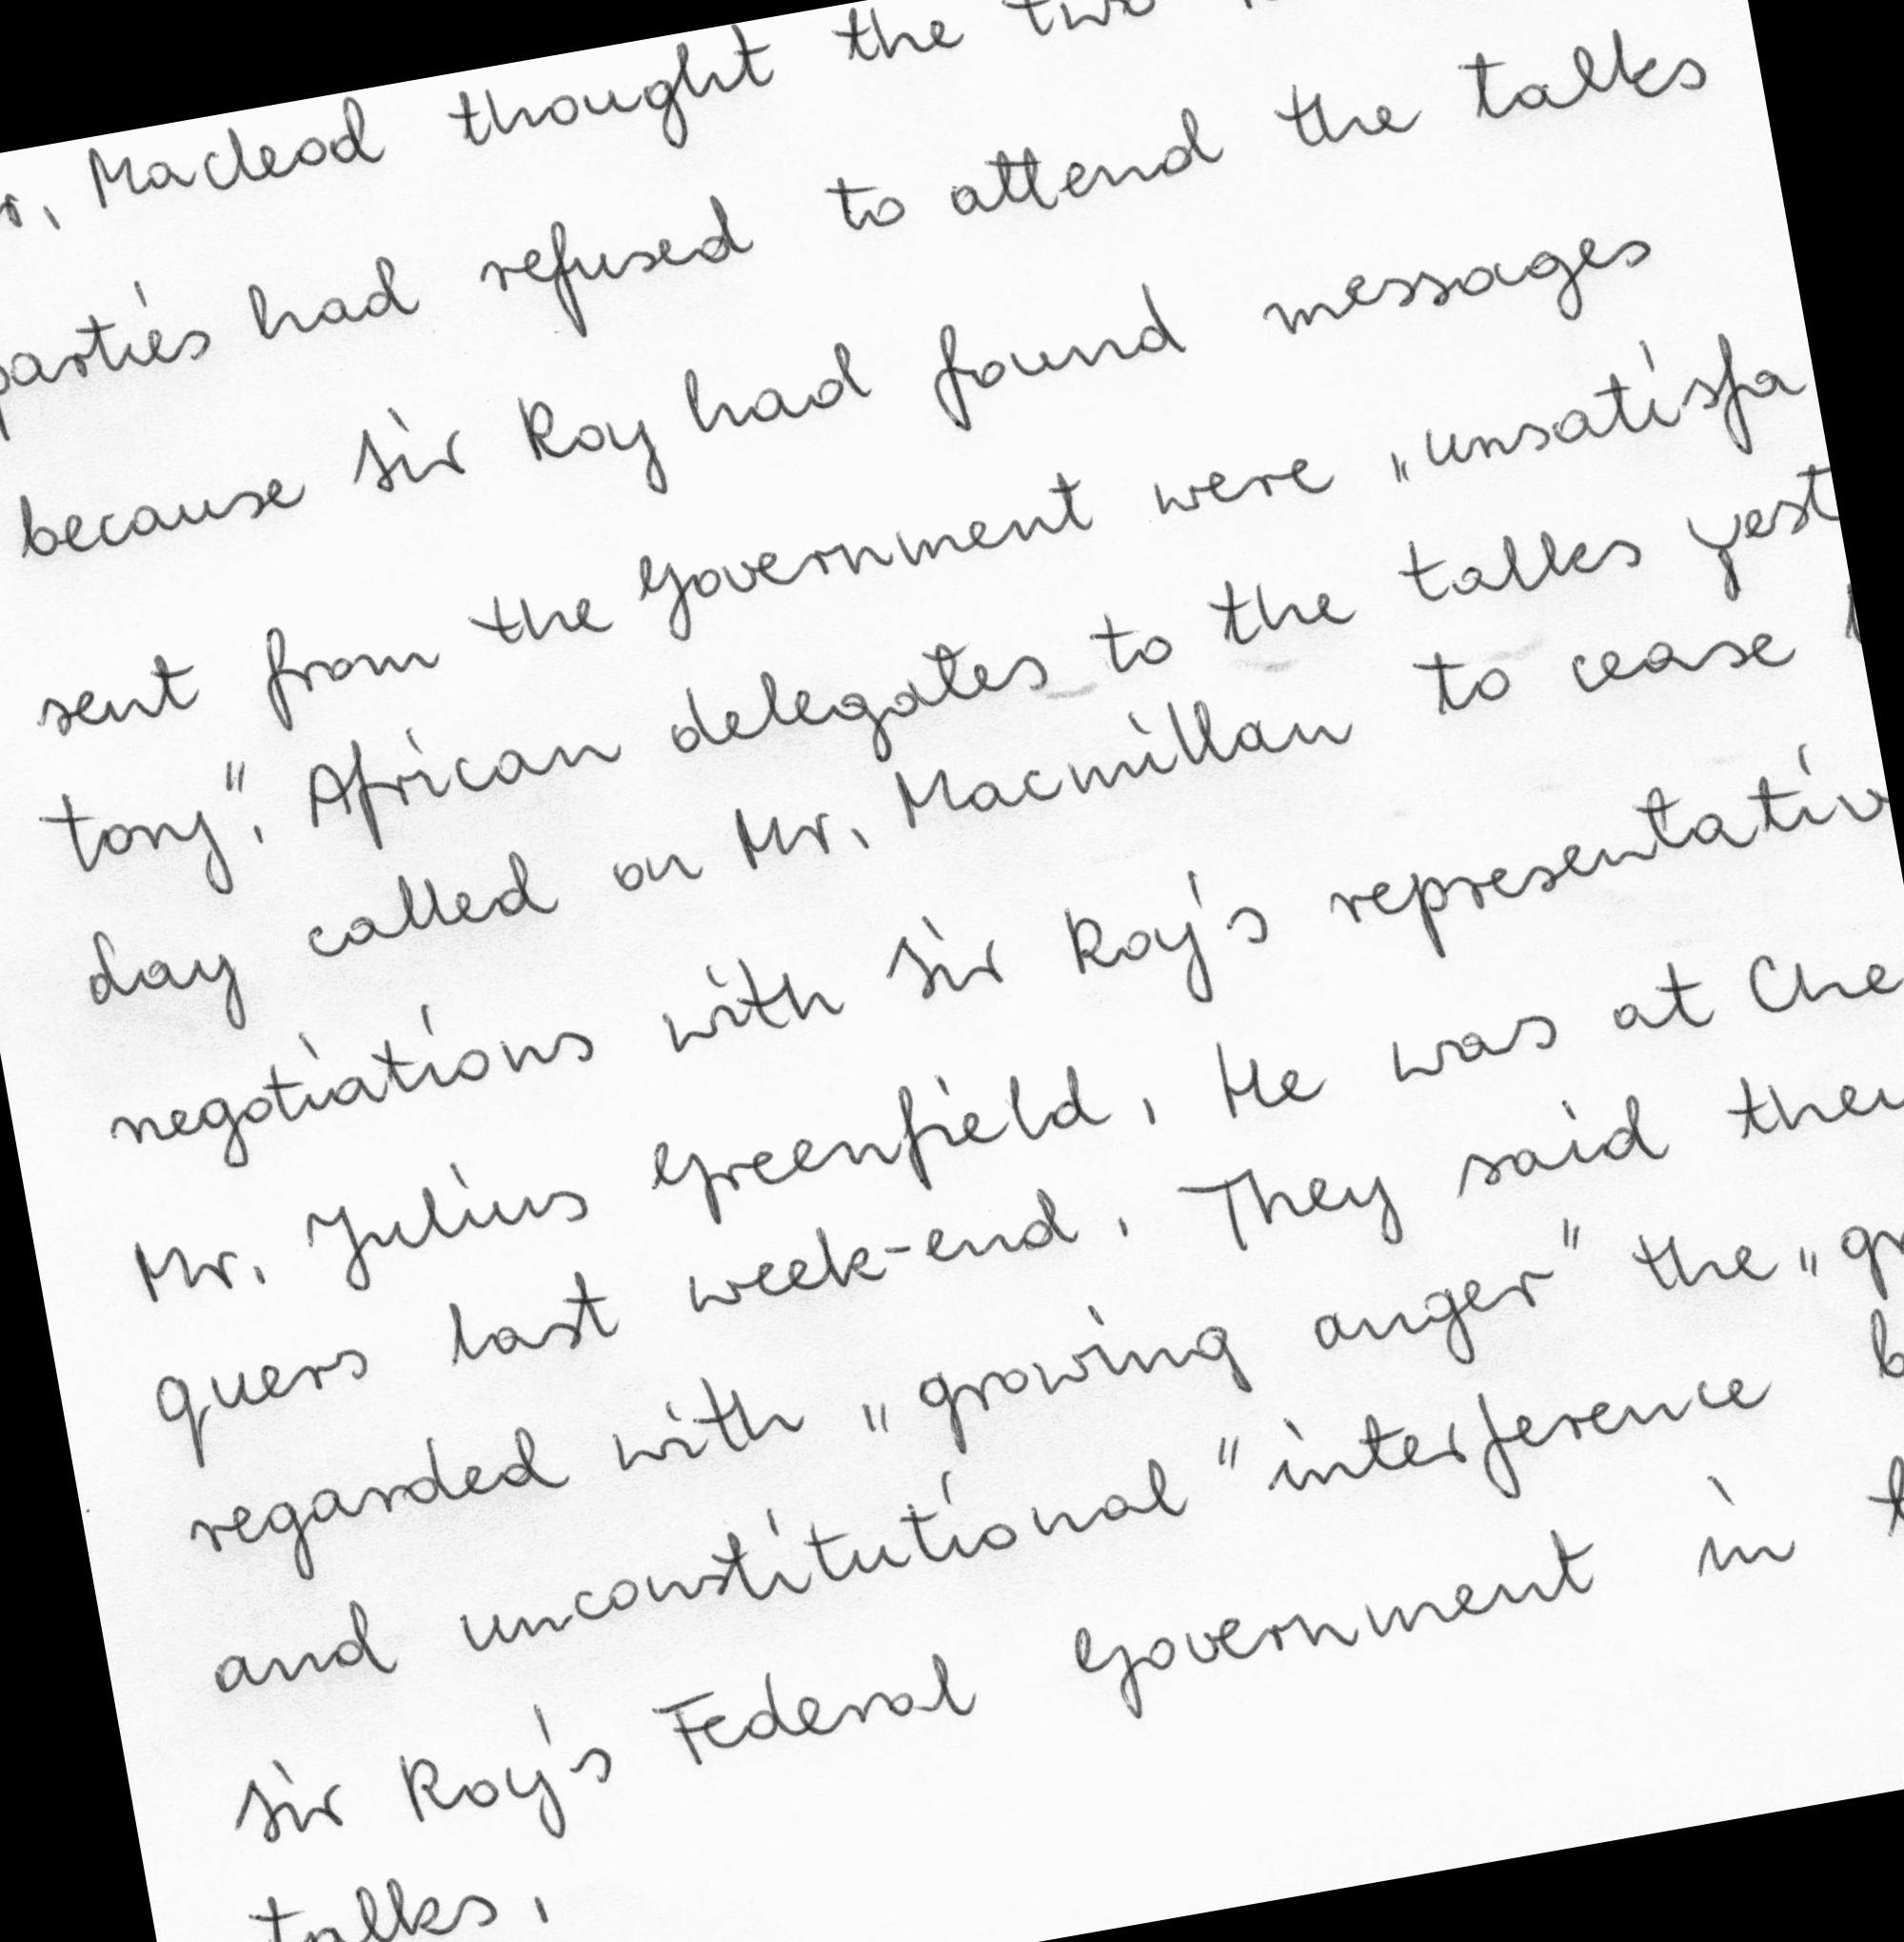 Macleod thought the two
parties had refused to attend the talks
because Sir Roy had found messages
sent from the Government were „unsatisfa
tory". African delegates to the talks yest
day called on Mr. Macmillan to cease
negotiations with Sir Roy's representativ
Mr. Julius Greenfield. He was at Che
quers last week-end. They said they
regarded with „growing anger" the „gr
and unconstitutional" interference b
Sir Roy's Federal Government in t
talks.